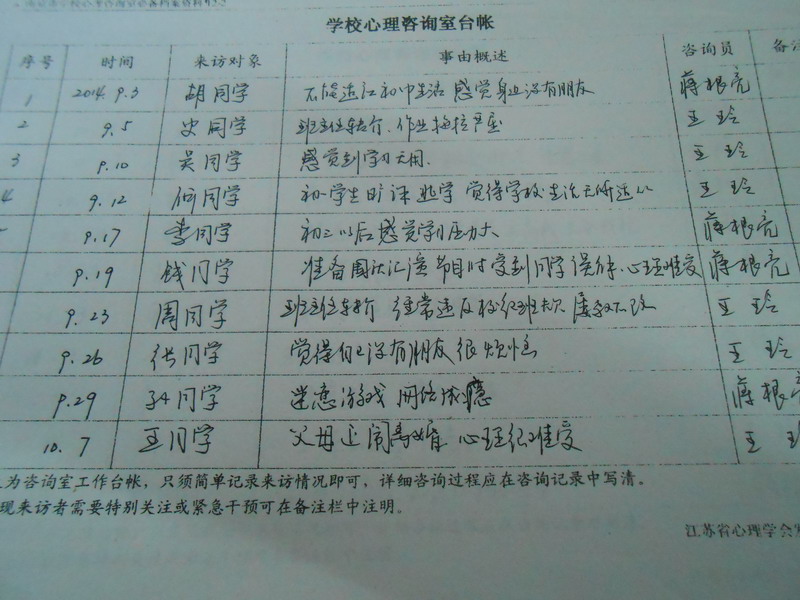 学校心理咨询室台帐
序号 时间 来访对象 事由概述 咨询员 备注
1 2014.9.3 胡同学 不能适应初中生活 感觉身边没有朋友 蒋根亮
2 9.5 史同学 班主任转介、作业拖拉严重 王玲
3 9.10 吴同学 感觉到学习无用. 王玲
4 9.12 何同学 初一学生旷课逃学 觉得学校生活无所适从 王玲
9.17 李同学 初三以后感觉学习压力大 蒋根亮
9.19 钱同学 准备国庆汇演节目时受到同学误解、心理难受 蒋根亮
9.23 周同学 班主任转介 经常违反校纪班规 屡教不改 王玲
9.26 张同学 觉得自己没有朋友很烦恼 王玲
9.29 孙同学 迷恋游戏 网络成瘾 蒋根
10.7 王同学 父母正闹离婚 心理很难受 王
为咨询室工作台帐，只须简单记录来访情况即可，详细咨询过程应在咨询记录中写清。
现来访者需要特别关注或紧急干预可在备注栏中注明。
江苏省心理学会